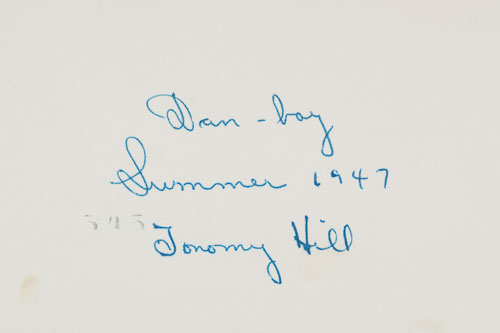 Dan-boy
Summer 1947
545
Tonomy Hill